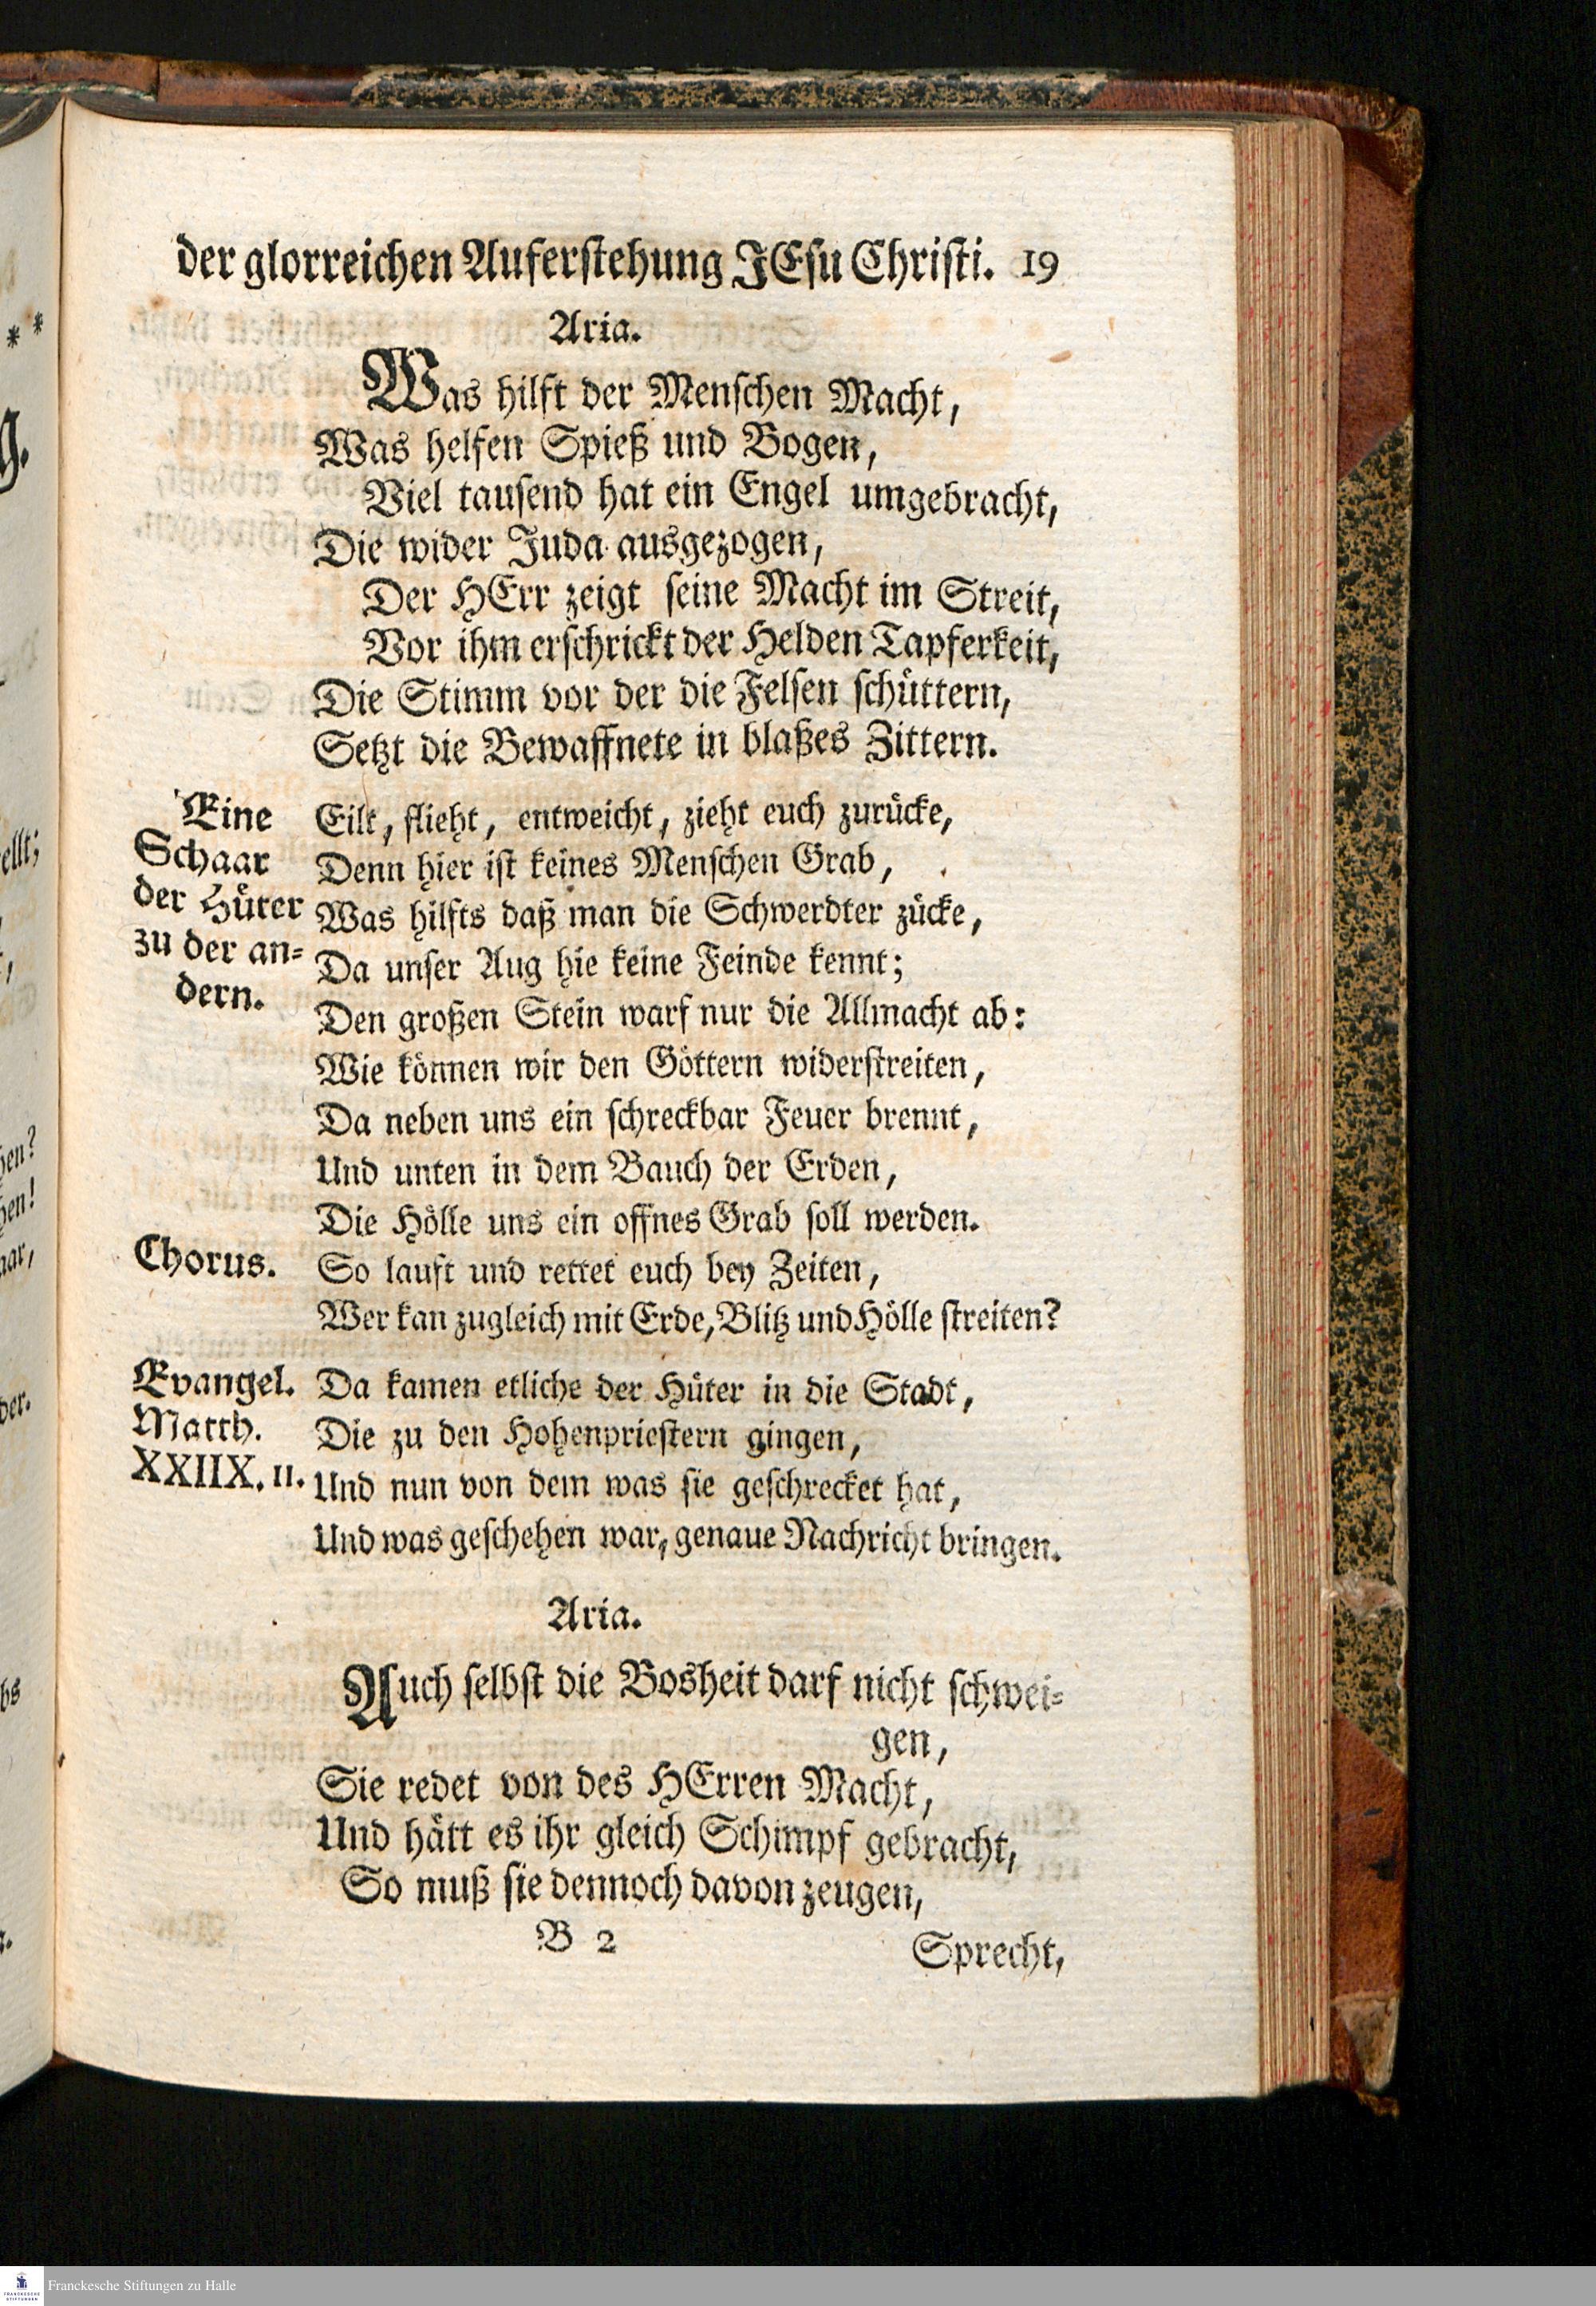 der glorreichen Auferstehung JEsu Christi. 19
Aria.
Was hilft der Menschen Macht,
Was helfen Spieß und Bogen,
Viel tausend hat ein Engel umgebracht,
Die wider Juda ausgezogen,
Der HErr zeigt seine Macht im Streit,
Vor ihm erschrickt der Helden Tapferkeit,
Die Stimm vor der die Felsen schüttern,
Setzt die Bewaffnete in blaßes Zittern.
Eine
Schaar
der Hüter
zu der an-
dern.
Eilt, flieht, entweicht, zieht euch zurücke,
Denn hier ist keines Menschen Grab,
Was hilfts daß man die Schwerdter zücke,
Da unser Aug hie keine Feinde kennt;
Den großen Stein warf nur die Allmacht ab:
Wie können wir den Göttern widerstreiten,
Da neben uns ein schreckbar Feuer brennt,
Und unten in dem Bauch der Erden,
Die Hölle uns ein offnes Grab soll werden.
Chorus. So lauft und rettet euch bey Zeiten,
Wer kan zugleich mit Erde, Blitz und Hölle streiten?
Evangel.
Matth.
XXIIX. 11.
Da kamen etliche der Hüter in die Stadt,
Die zu den Hohenpriestern gingen,
Und nun von dem was sie geschrecket hat,
Und was geschehen war, genaue Nachricht bringen.
Aria.
Auch selbst die Bosheit darf nicht schwei-
gen,
Sie redet von des HErren Macht,
Und hätt es ihr gleich Schimpf gebracht,
So muß sie dennoch davon zeugen,
B 2
Sprecht,
Franckesche Stiftungen zu Halle